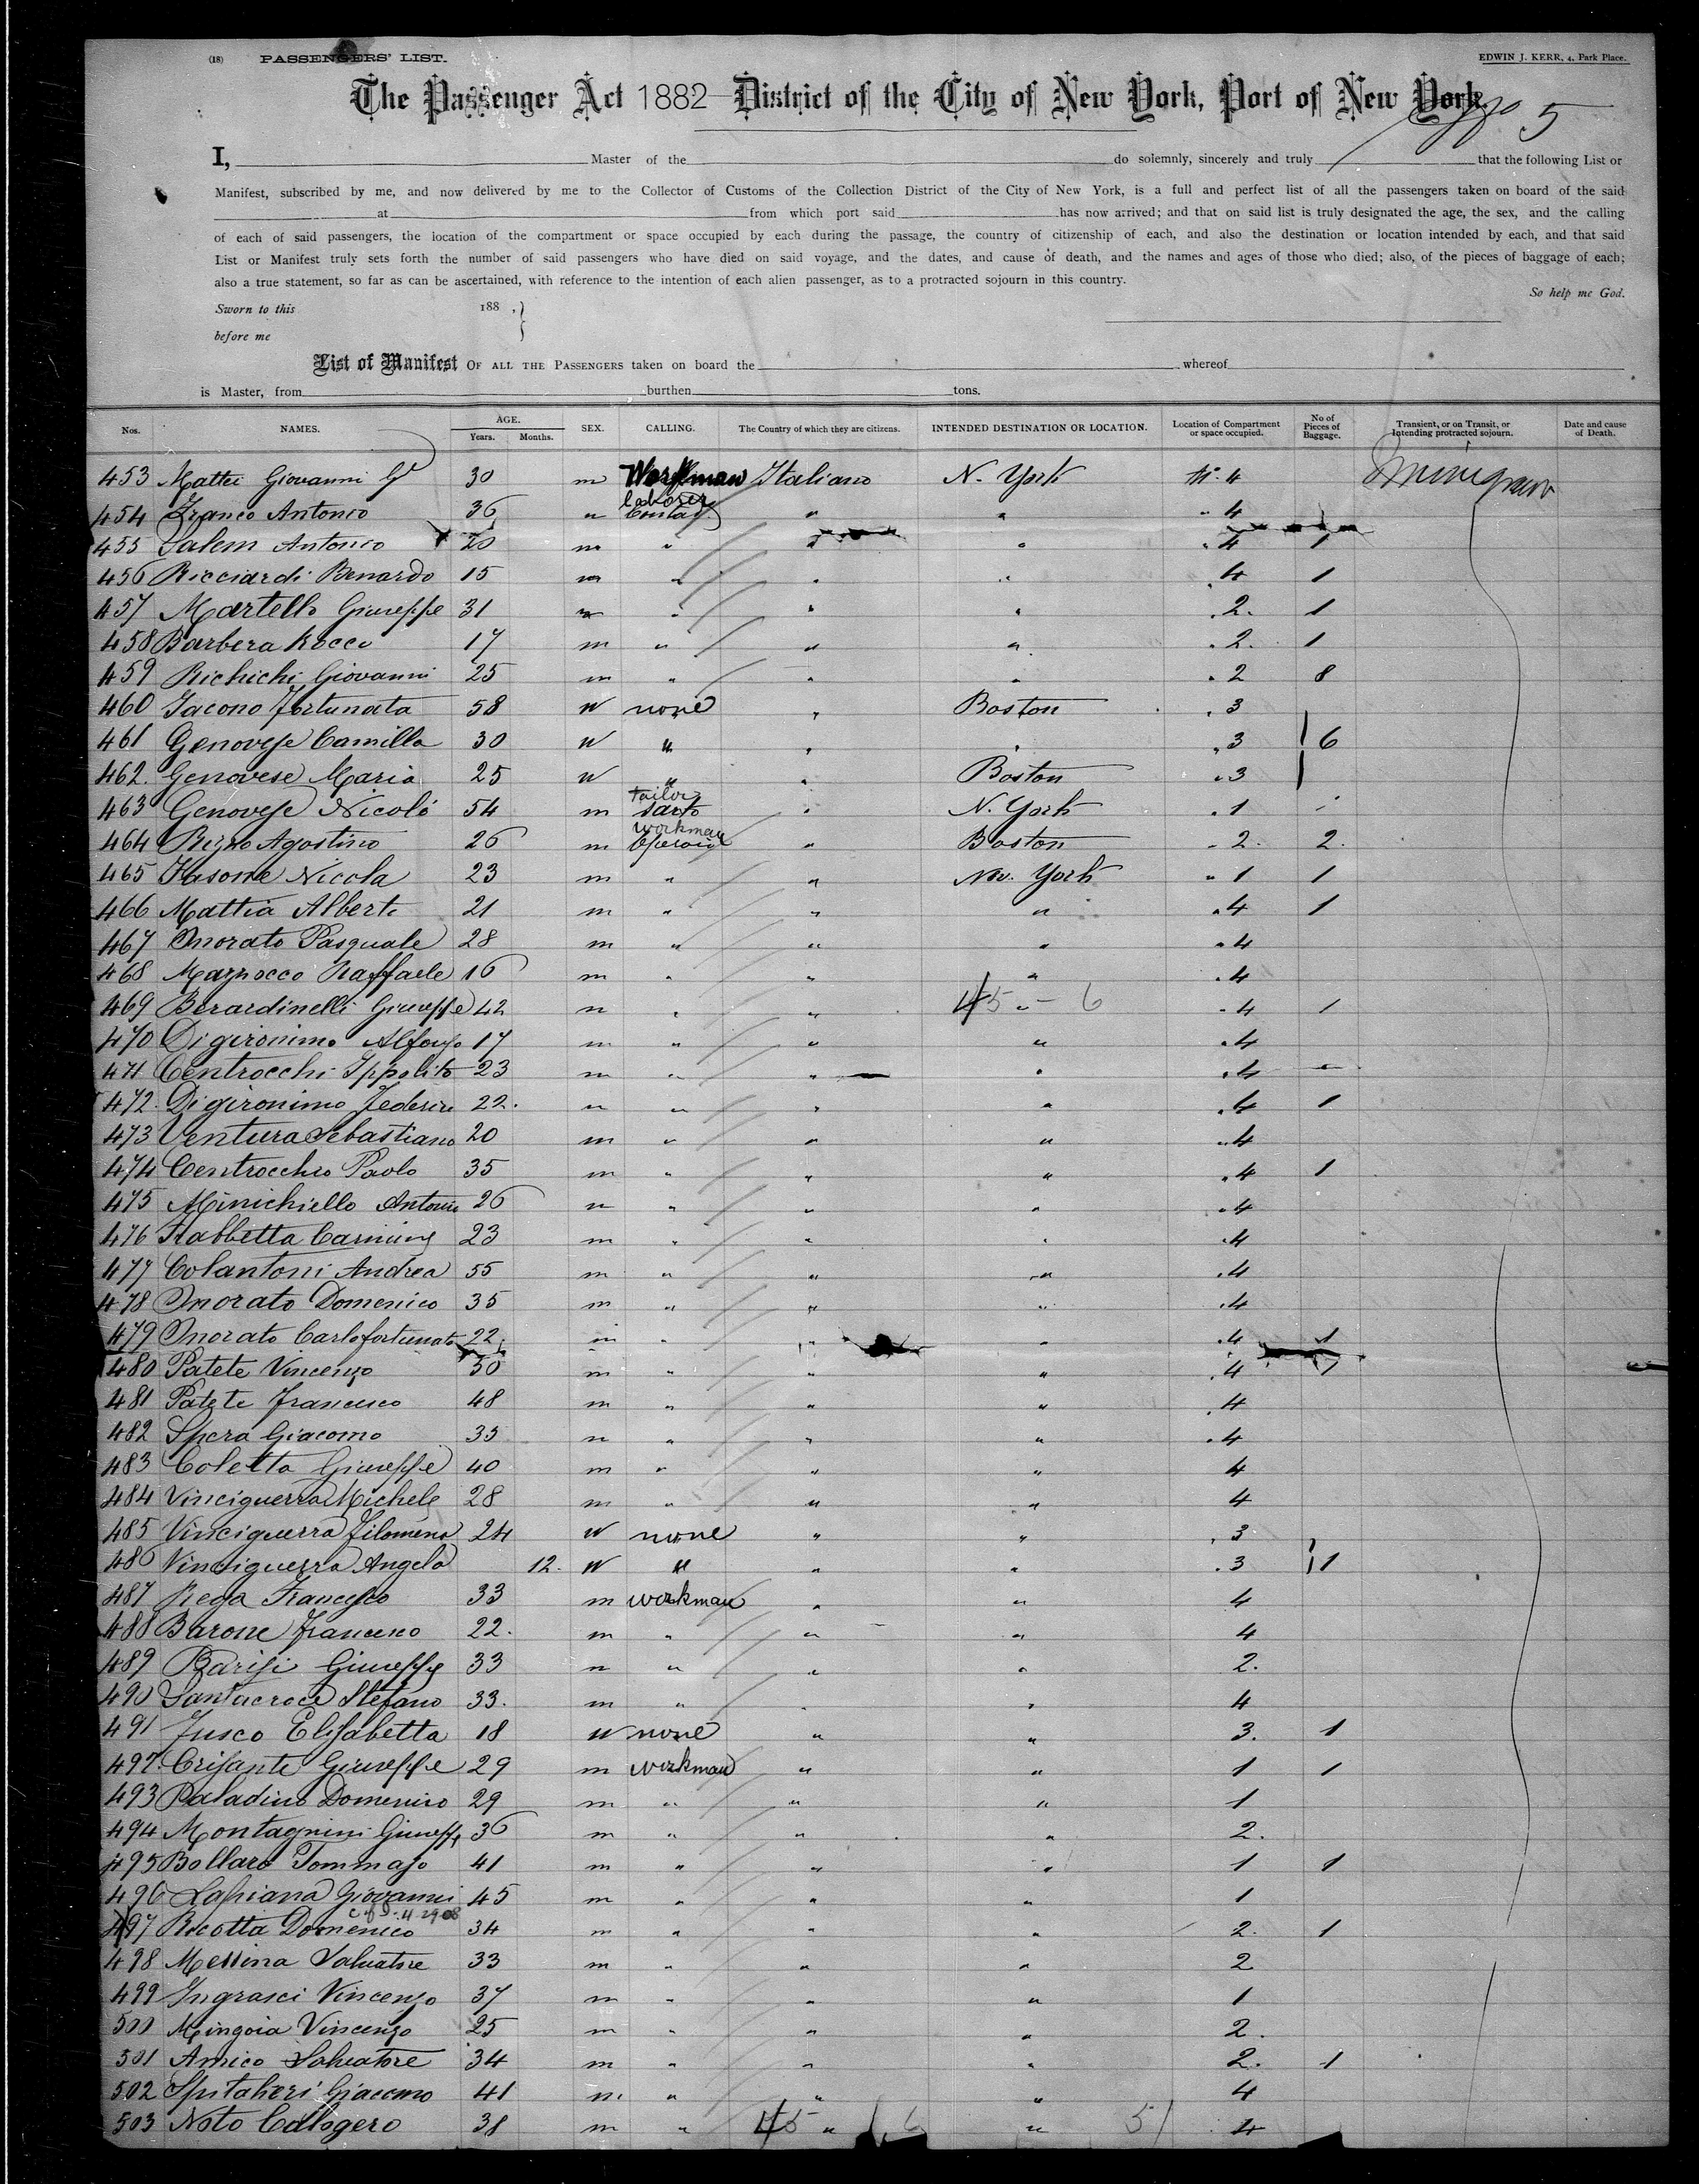 (18) PASSENGERS' LIST. EDWIN J. KERR, 4, Park Place.
The Passenger Act 1882 District of the City of New York, Port of New York.
5
I, Master of the do solemnly, sincerely and truly that the following List or
Manifest, subscribed by me, and now delivered by me to the Collector of Customs of the Collection District of the City of New York, is a full and perfect list of all the passengers taken on board of the said
at from which port said has now arrived; and that on said list is truly designated the age, the sex, and the calling
of each of said passengers, the location of the compartment or space occupied by each during the passage, the country of citizenship of each, and also the destination or location intended by each, and that said
List or Manifest truly sets forth the number of said passengers who have died on said voyage, and the dates, and cause of death, and the names and ages of those who died; also, of the pieces of baggage of each;
also a true statement, so far as can be ascertained, with reference to the intention of each alien passenger, as to a protracted sojourn in this country.
So help me God.
Sworn to this 188 ,}
before me
List of Manifest OF ALL THE PASSENGERS taken on board the whereof
is Master, from burthen tons.
Nos. NAMES. AGE. Years. Months. SEX. CALLING. The Country of which they are citizens. INTENDED DESTINATION OR LOCATION. Location of Compartment or space occupied. No of Pieces of Baggage. Transient, or on Transit, or Intending protracted sojourn. Date and cause of Death.
453 Mattei Giovanni G 30 m Workman Italiano N. York 4
454 Franco Antonio 36 m laborer " " " 4
455 Salem Antonio 20 m " " " " 4 1
456 Ricciardi Benardo 15 m " " " " 4 1
457 Martello Giuseppe 31 m " " " " 2. 1
458 Barbera Rocco 17 m " " " " 2. 1
459 Richichi Giovanni 25 m " " " " 2 8
460 Iacono Fortunata 58 W none " Boston " 3
461 Genovese Camilla 30 W " " " " 3 6
462. Genovese Maria 25 W " " Boston " 3
463 Genovese Nicoló 54 m tailor sarto " N. York " 1
464 Agostino 26 m workman " Boston " 2. 2.
465 Fasone Nicola 23 m " " New. York " 1 1
466 Mattia Alberto 21 m " " " " 4 1
467 Onorato Pasquale 28 m " " " " 4
468 Marzocco Raffaele 16 m " " " " 4
469 Berardinelli Giuseppe 42 m " " 45 " - 6 " 4 1
470 Digironimo Alfonso 17 m " " " " 4
471 Centrocchi Ippolito 23 m " " " " 4
472. Digironimo Federico 22. m " " " " 4 1
473 Ventura Sebastiano 20 m " " " " 4
474 Centrocchio Paolo 35 m " " " " 4 1
475 Minichiello Antonio 26 m " " " " 4
476 Carmine 23 m " " " " 4
477 Colantoni Andrea 55 m " " " " 4
478 Onorato Domenico 35 m " " " " 4
479 Onorato Carlofortunato 22. m " " " " 4 1
480 Patete Vincenzo 50 m " " " " 4 1
481 Patete Francesco 48 m " " " " 4
482 Spera Giacomo 35 m " " " " 4
483 Coletta Giuseppe 40 m " " " 4
484 Vinciguerra Michele 28 m " " " 4
485 Vinciguerra Filomena 24 W none " " " 3
486 Vinciguerra Angela 12. W " " " " 3 1
487 Rega Francesco 33 m workman " " 4
488 Barone Francesco 22. m " " " 4
489 Barisi Giuseppe 33 m " " " 2.
490 Santacroce Stefano 33. m " " " 4
491 Fusco Elisabetta 18 W none " " 3. 1
492. Crisante Giuseppe 29 m workman " " 1 1
493 Paladino Domenico 29 m " " " 1
494 Montagnini Giuseppe 36 m " " " 2.
495 Bollaro Tommaso 41 m " " " 1 1
496 Lapiana Giovanni 45 m " " " 1
497 Ricotta Domenico 34 m " " " 2. 1
498 Messina Salvatore 33 m " " " 2
499 Ingrasci Vincenzo 37 m " " " 1
500 Mingoia Vincenzo 25 m " " " 2.
501 Amico Salvatore 34 m " " " 2. 1
502 Spitaleri Giacomo 41 m. " " " 4
503 Noto Calogero 38 m " 45 " 6 " 51 4